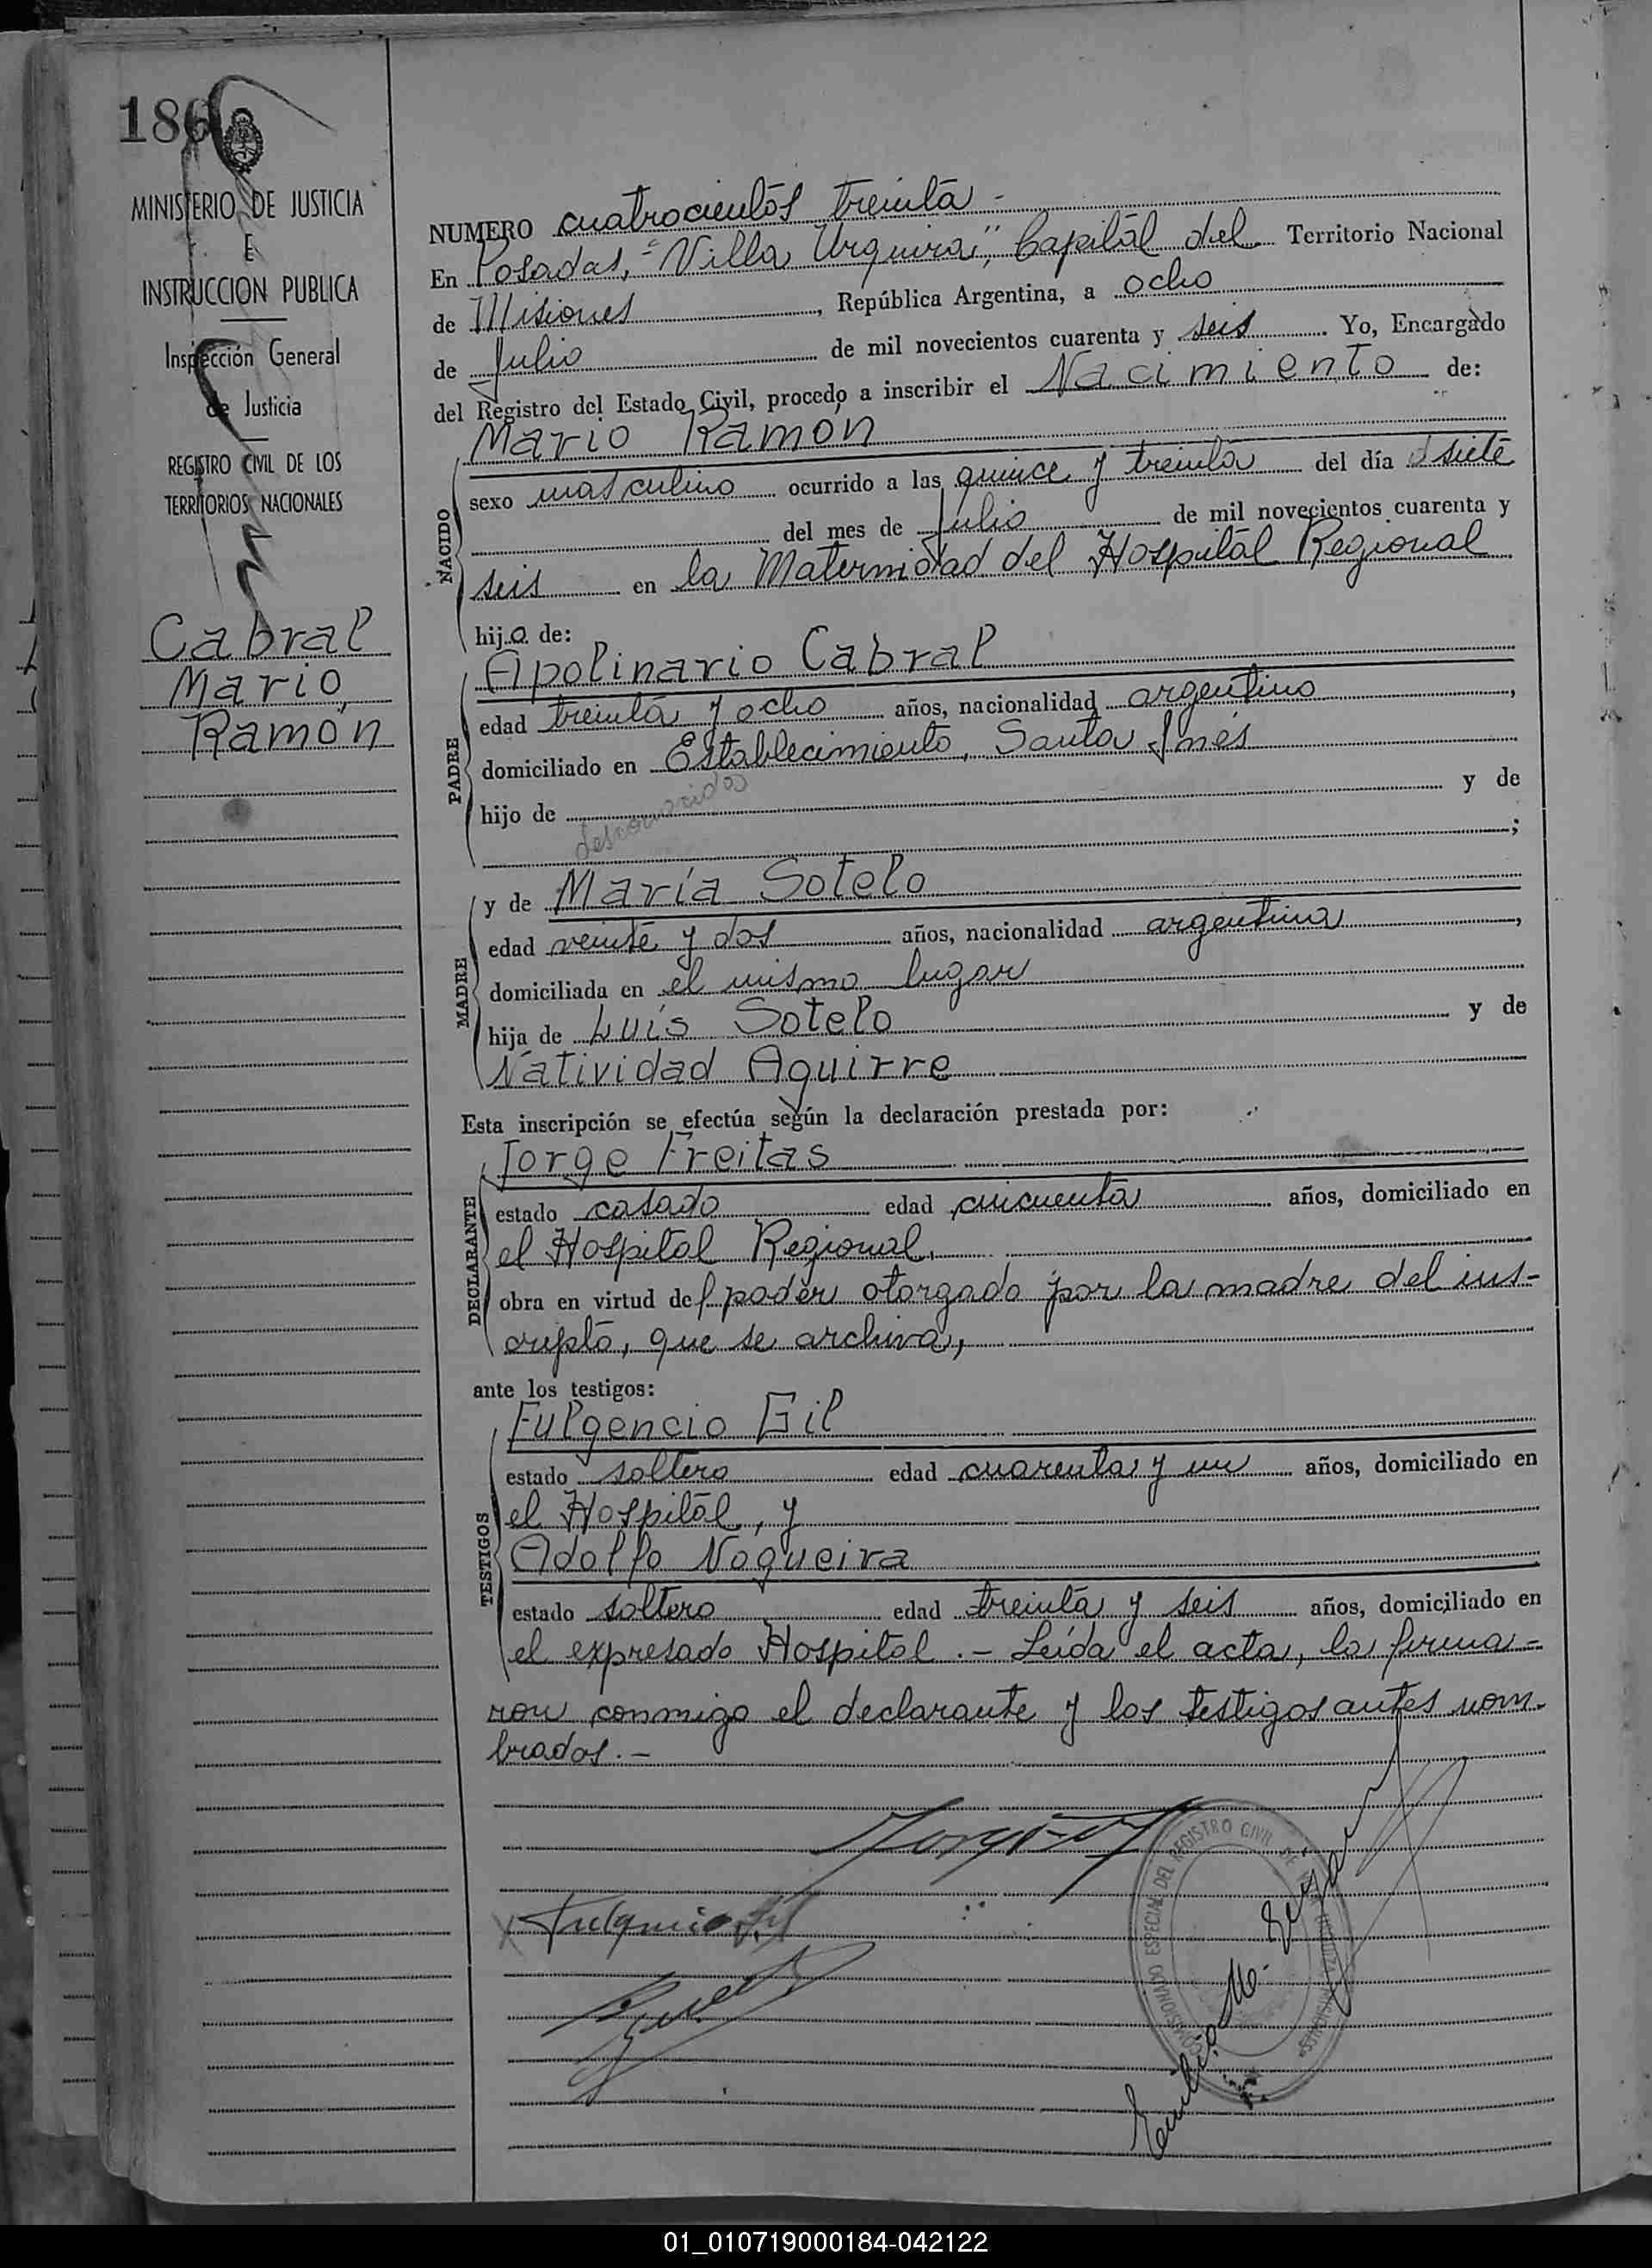 186
MINISTERIO DE JUSTICIA
E
INSTRUCCION PUBLICA
Inspección General
de Justicia
REGISTRO CIVIL DE LOS
TERRITORIOS NACIONALES
Cabral
Mario
Ramón
NUMERO cuatrocientos treinta -
En Posadas, "Villa Urquiza", Capital del Territorio Nacional
de Misiones, República Argentina, a ocho
de Julio de mil novecientos cuarenta y seis. Yo, Encargado
del Registro del Estado Civil, procedo a inscribir el Nacimiento de:
Mario Ramón
NACIDO
sexo masculino ocurrido a las quince y treinta del día siete
del mes de Julio de mil novecientos cuarenta y
seis en la Maternidad del Hospital Regional
hijo de:
Apolinario Cabral
PADRE
edad treinta y ocho años, nacionalidad argentino,
domiciliado en Establecimiento, Santa Inés
hijo de desconocidos y de
;
y de María Sotelo
MADRE
edad veinte y dos años, nacionalidad argentina,
domiciliada en el mismo lugar
hija de Luis Sotelo y de
Natividad Aguirre
Esta inscripción se efectúa según la declaración prestada por:
Jorge Freitas
DECLARANTE
estado casado edad cincuenta años, domiciliado en
el Hospital Regional,
obra en virtud del poder otorgado por la madre del ins-
cripto, que se archiva,
ante los testigos:
Fulgencio Gil
TESTIGOS
estado soltero edad cuarenta y un años, domiciliado en
el Hospital, y
Adolfo Nogueira
estado soltero edad treinta y seis años, domiciliado en
el expresado Hospital. - Leída el acta, la firma-
ron conmigo el declarante y los testigos antes nom-
brados. -
Fulgencio Gil
COMISIONADO ESPECIAL DEL REGISTRO CIVIL DE
Emilio M.
01_010719000184-042122